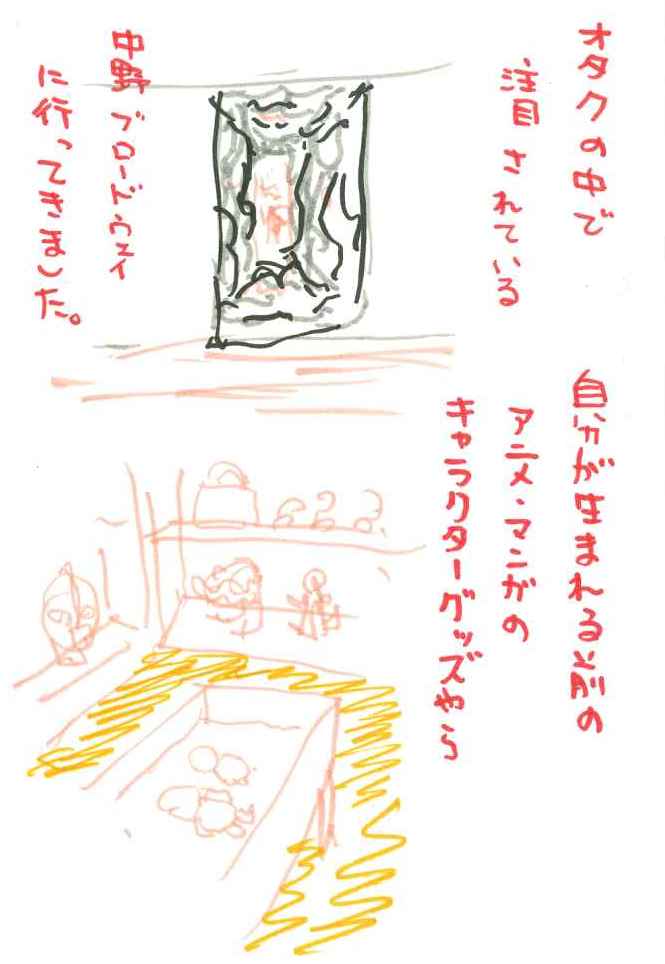 オタクの中で
注目されている
中野ブロードウェイ
に行ってきました。
自分が生まれる前の
アニメ・マンガの
キャラクターグッズやら